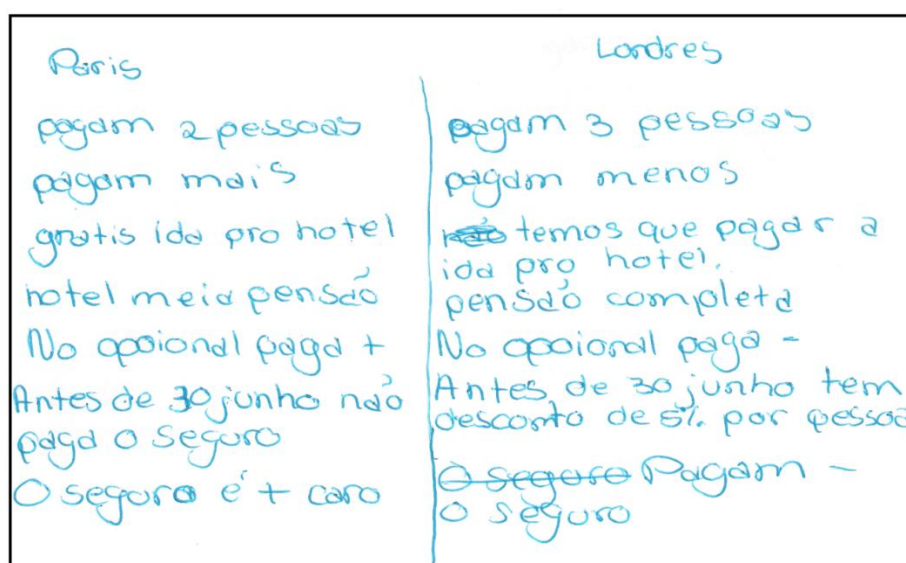 Paris
pagam 2 pessoas
pagam mais
gratis ida pro hotel
hotel meia pensão
No opoional paga +
Antes de 30 junho não
paga o seguro
O seguro é + caro
Londres
pagam 3 pessoas
pagam menos
não temos que pagar a
ida pro hotel.
pensão completa
No opoional paga -
Antes de 30 junho tem
desconto de 5% por pessoa
O seguro Pagam -
o seguro